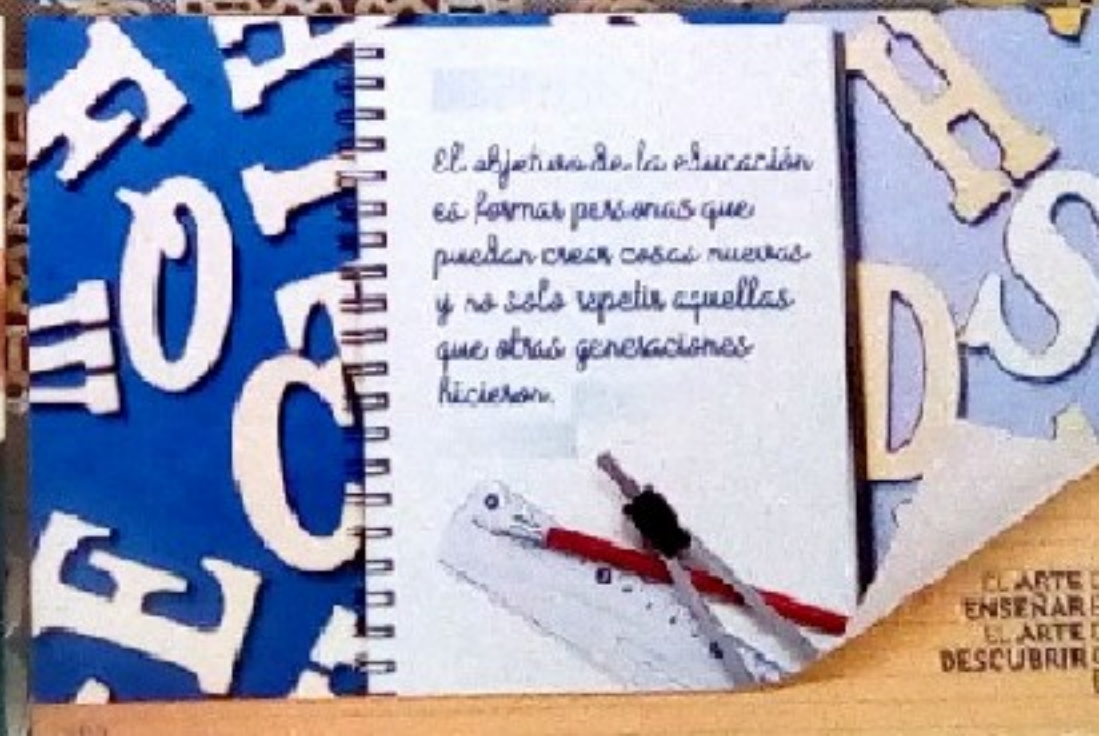 El objetivo de la educación
es formar personas que
puedan crear cosas nuevas
y no solo repetir aquellas
que otras generaciones
hicieron.
EL ARTE
ENSEÑAR
EL ARTE
DESCUBRIR